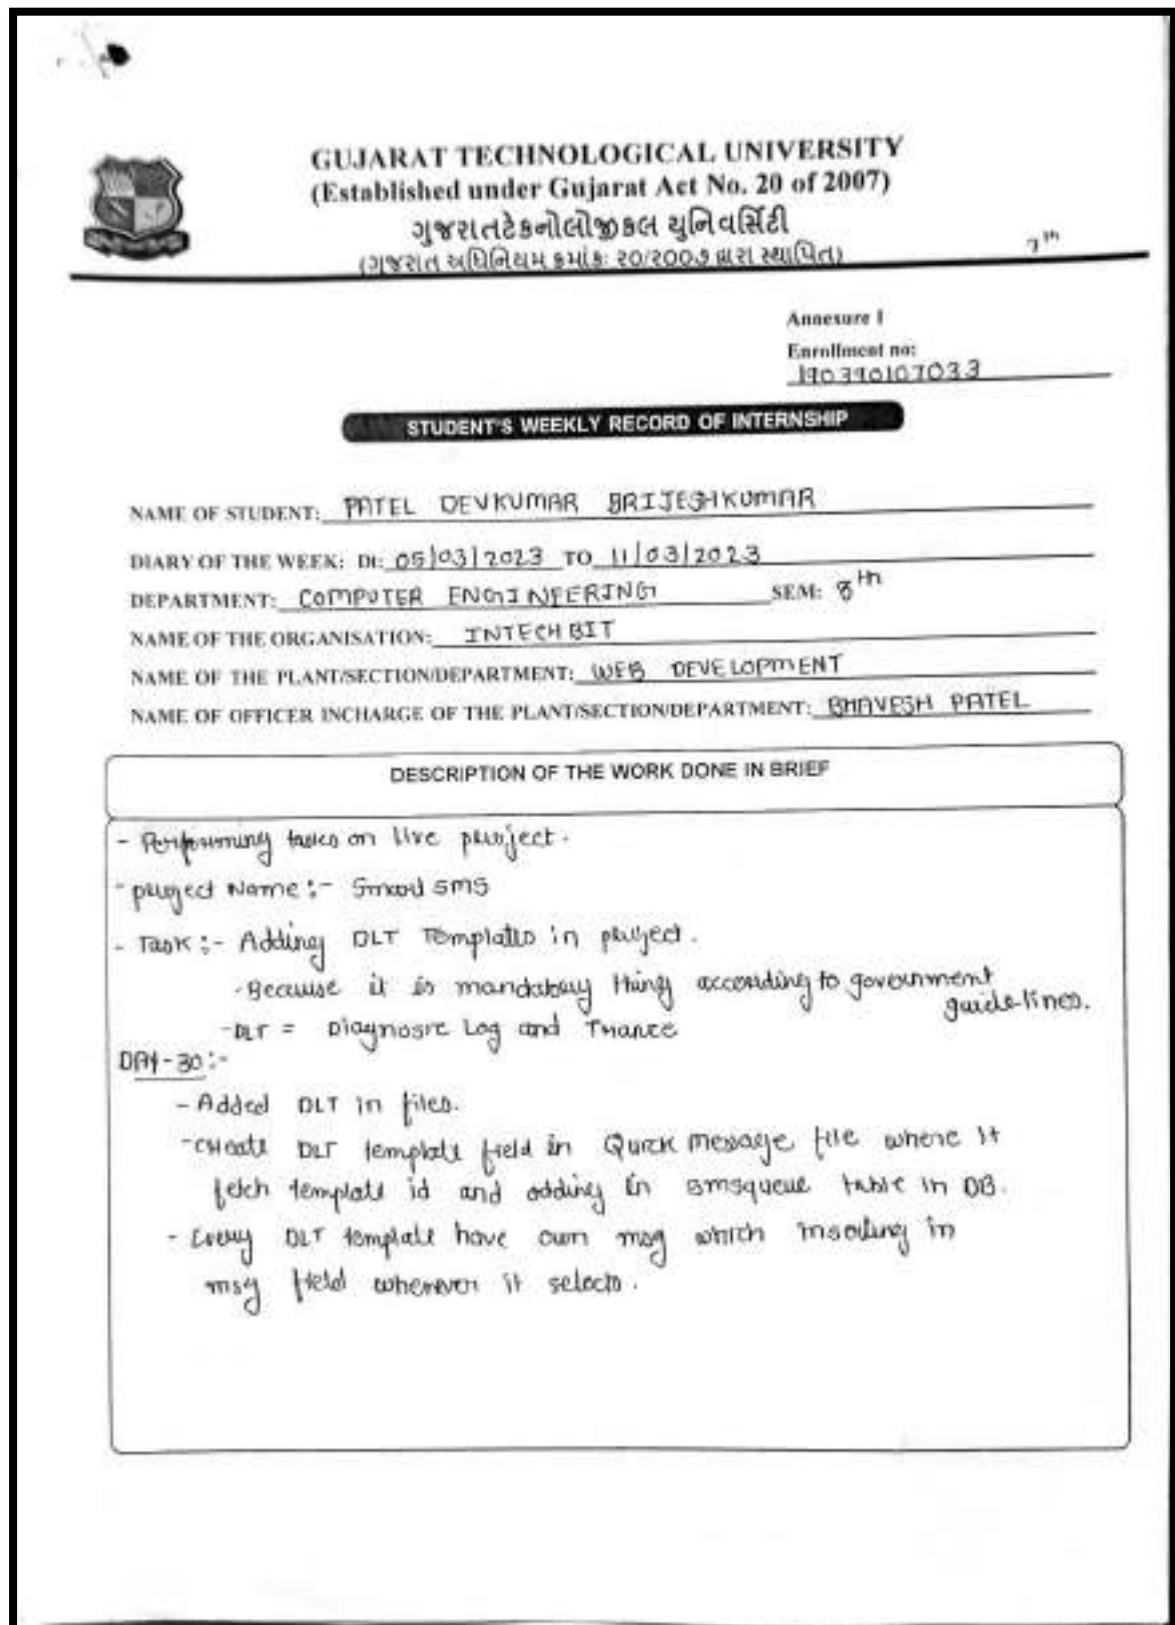 GUJARAT TECHNOLOGICAL UNIVERSITY
(Established under Gujarat Act No. 20 of 2007)
ગુજરાતટેકનોલોજીકલ યુનિવર્સિટી
(ગુજરાત અધિનિયમ ક્રમાંક: ૨૦/૨૦૦૭ દ્વારા સ્થાપિત)
7th
Annexure I
Enrollment no:
190390107033
STUDENT'S WEEKLY RECORD OF INTERNSHIP
NAME OF STUDENT: PATEL DEVKUMAR BRIJESHKUMAR
DIARY OF THE WEEK: Dt: 05/03/2023 TO 11/03/2023
DEPARTMENT: COMPUTER ENGINEERING SEM: 8th
NAME OF THE ORGANISATION: INTECHBIT
NAME OF THE PLANT/SECTION/DEPARTMENT: WEB DEVELOPMENT
NAME OF OFFICER INCHARGE OF THE PLANT/SECTION/DEPARTMENT: BHAVESH PATEL
DESCRIPTION OF THE WORK DONE IN BRIEF
- Performing tasks on live project.
- project Name :- Smart SMS
- Task :- Adding DLT Templates in project.
- Because it is mandatory thing according to government
guide-lines.
- DLT = Diagnosic Log and Trance
DAY-30 :-
- Added DLT in files.
- Create DLT template field in Quick message file where it
fetch template id and adding in smsqueue table in DB.
- Every DLT template have own msg which inserting in
msg field whenever it selects.